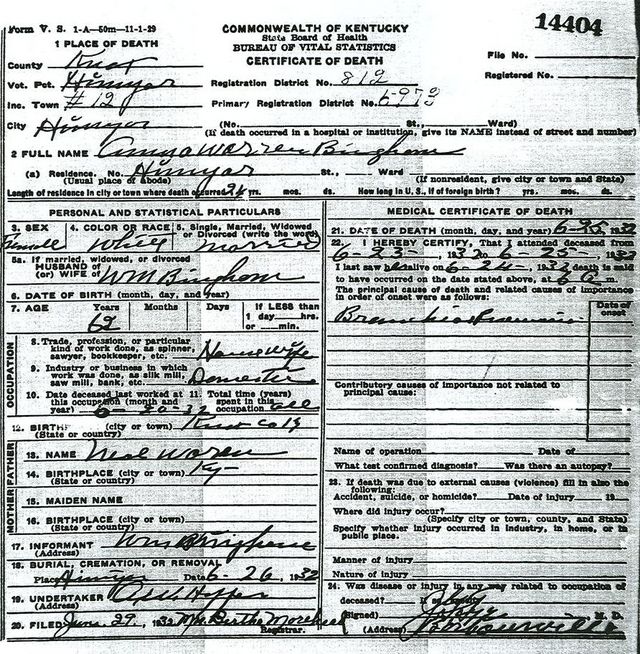 Form V. S. 1-A—50m—11-1-29
COMMONWEALTH OF KENTUCKY
State Board of Health
BUREAU OF VITAL STATISTICS
CERTIFICATE OF DEATH
14404
File No.
Registered No.
1 PLACE OF DEATH
County Knox
Vot. Pct. Himyar
Inc. Town #12
City Himyar
Registration District No. 812
Primary Registration District No. 6973
(No. St., Ward)
(If death occurred in a hospital or institution, give its NAME instead of street and number)
2 FULL NAME Warren Bingham
(a) Residence. No. Himyar St., Ward
(Usual place of abode) (If nonresident, give city or town and State)
Length of residence in city or town where death occurred yrs. mos. ds. How long in U. S., if of foreign birth? yrs. mos. ds.
PERSONAL AND STATISTICAL PARTICULARS
3. SEX 4. COLOR OR RACE 5. Single, Married, Widowed
or Divorced (write the word)
Female White Married
5a. If married, widowed, or divorced
HUSBAND of
(or) WIFE of Wm Bingham
6. DATE OF BIRTH (month, day, and year)
7. AGE Years Months Days If LESS than
1 day hrs.
or min.
62
OCCUPATION
8. Trade, profession, or particular
kind of work done, as spinner,
sawyer, bookkeeper, etc. House wife
9. Industry or business in which
work was done, as silk mill,
saw mill, bank, etc. Domestic
10. Date deceased last worked at 11. Total time (years)
this occupation (month and spent in this
year) 6-20-32 occupation all
12. BIRTH (city or town) Knox Co Ky
(State or country)
FATHER
13. NAME Neal Waren
14. BIRTHPLACE (city or town) Ky
(State or country)
MOTHER
15. MAIDEN NAME
16. BIRTHPLACE (city or town)
(State or country)
17. INFORMANT Wm Bingham
(Address)
18. BURIAL, CREMATION, OR REMOVAL
Place Himyar Date 6-26, 1932
19. UNDERTAKER Hopper
(Address)
20. FILED June 29, 1932 Mrs Bertha
Registrar.
MEDICAL CERTIFICATE OF DEATH
21. DATE OF DEATH (month, day, and year) 6-25 1932
22. I HEREBY CERTIFY, That I attended deceased from
6-23-, 1932 to 6-25-, 1932
I last saw h alive on 6-24-, 1932 death is said
to have occurred on the date stated above, at 6 m.
The principal cause of death and related causes of importance
in order of onset were as follows:
Date of
onset
Contributory causes of importance not related to
principal cause:
Name of operation Date of
What test confirmed diagnosis? Was there an autopsy?
23. If death was due to external causes (violence) fill in also the
following:
Accident, suicide, or homicide? Date of injury 19
Where did injury occur?
(Specify city or town, county, and State)
Specify whether injury occurred in industry, in home, or in
public place.
Manner of injury
Nature of injury
24. Was disease or injury in any way related to occupation of
deceased? If so,
(Signed) M. D.
(Address) Barbourville